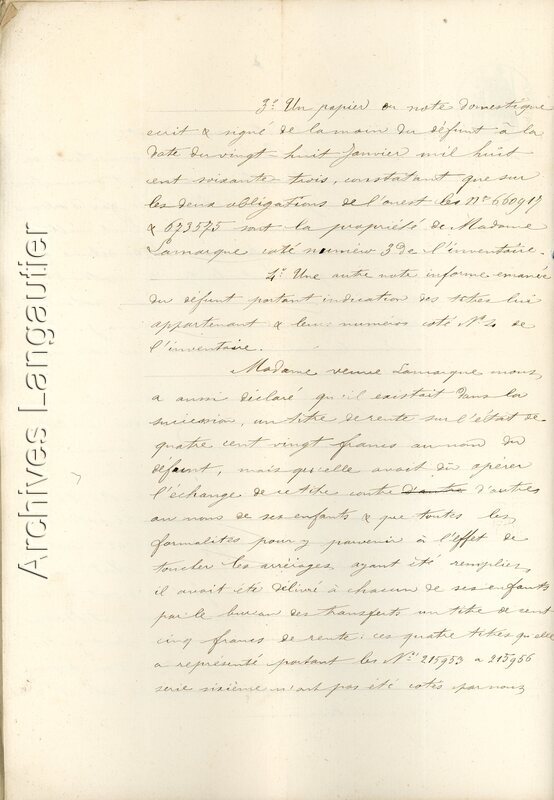 3.° Un papier ou note domestique
ecrit & signé de la main du défunt à la
date du vingt-huit Janvier mil huit
cent soixante-trois, constatant que sur
les deux obligations de l'ouest les n.os 660917
& 673575 sont la propriété de Madame
Lamarque coté numéro 3 de l'inventaire.
4.° Une autre note informe emanée
du défunt portant indication des titres lui
appartenant & leurs numéros coté N.° 4 de
l'inventaire.
Madame veuve Lamarque nous
a aussi déclaré qu'il existait dans la
succession, un titre de rente sur l'état de
quatre cent vingt francs au nom du
défunt, mais qu'elle avait dû opérer
l'échange de ce titre contre d'autres d'autres
au noms de ses enfants & que toutes les
formalités pour y parvenir à l'effet de
toucher les arrérages, ayant été remplies,
il avait été délivré à chacun de ses enfants
par le bureau des transferts un titre de cent
cinq francs de rente: ces quatre titres qu'elle
a représenté portant les N.os 215953 a 215956
serie sixième n'ont pas été cotés par nous
Archives Langautier